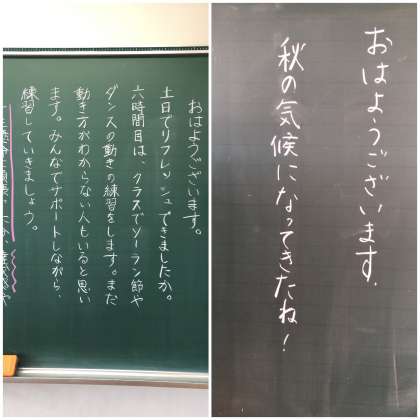 おはようございます。
土日でリフレッシュできましたか。
六時間目は、クラスでソーラン節や
ダンスの動きの練習をします。まだ
動き方がわからない人もいると思い
ます。みんなでサポートしながら、
練習していきましょう。
おはようございます.
秋の気候になってきたね!